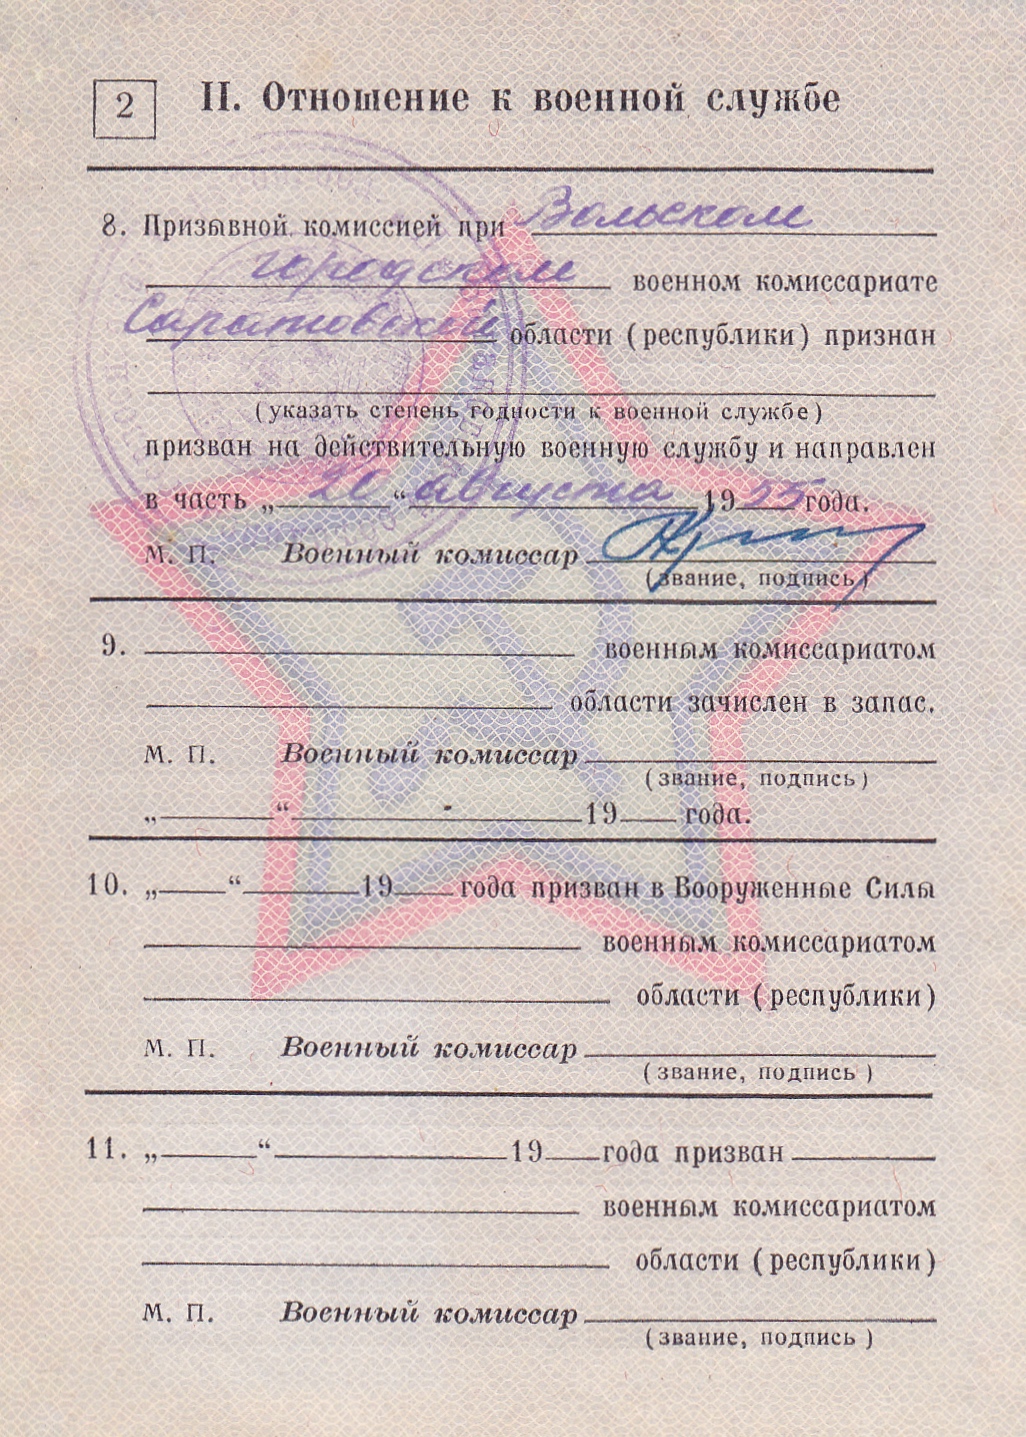 2
II. Отношение к военной службе
8. Призывной комиссией при Вольском
городском военном комиссариате
Саратовской области (республики) признан
(указать степень годности к военной службе)
призван на действительную военную службу и направлен
в часть „ 20 “ августа 1955 года.
М. П. Военный комиссар
(звание, подпись)
9. военным комиссариатом
области зачислен в запас.
М. П. Военный комиссар
(звание, подпись)
„ “ 19 года.
10. „ “ 19 года призван в Вооруженные Силы
военным комиссариатом
области (республики)
М. П. Военный комиссар
(звание, подпись)
11. „ “ 19 года призван
военным комиссариатом
области (республики)
М. П. Военный комиссар
(звание, подпись)